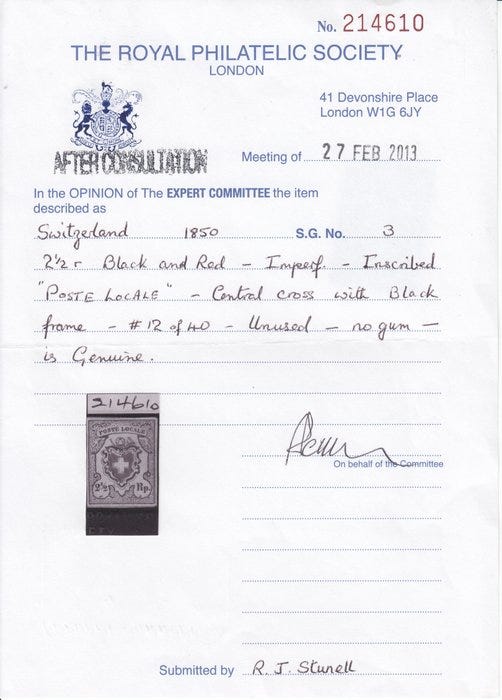 No. 214610
THE ROYAL PHILATELIC SOCIETY
LONDON
41 Devonshire Place
London W1G 6JY
AFTER CONSULTATION
Meeting of 27 FEB 2013
In the OPINION of The EXPERT COMMITTEE the item
described as
Switzerland 1850 S.G. No. 3
2½ r Black and Red - Imperf. - Inscribed
"POSTE LOCALE" - Central cross with Black
frame - #12 of 40 - Unused - no gum -
is Genuine.
214610
POSTE LOCALE
2½ Rp.
On behalf of the Committee
Submitted by R. J. Stunell